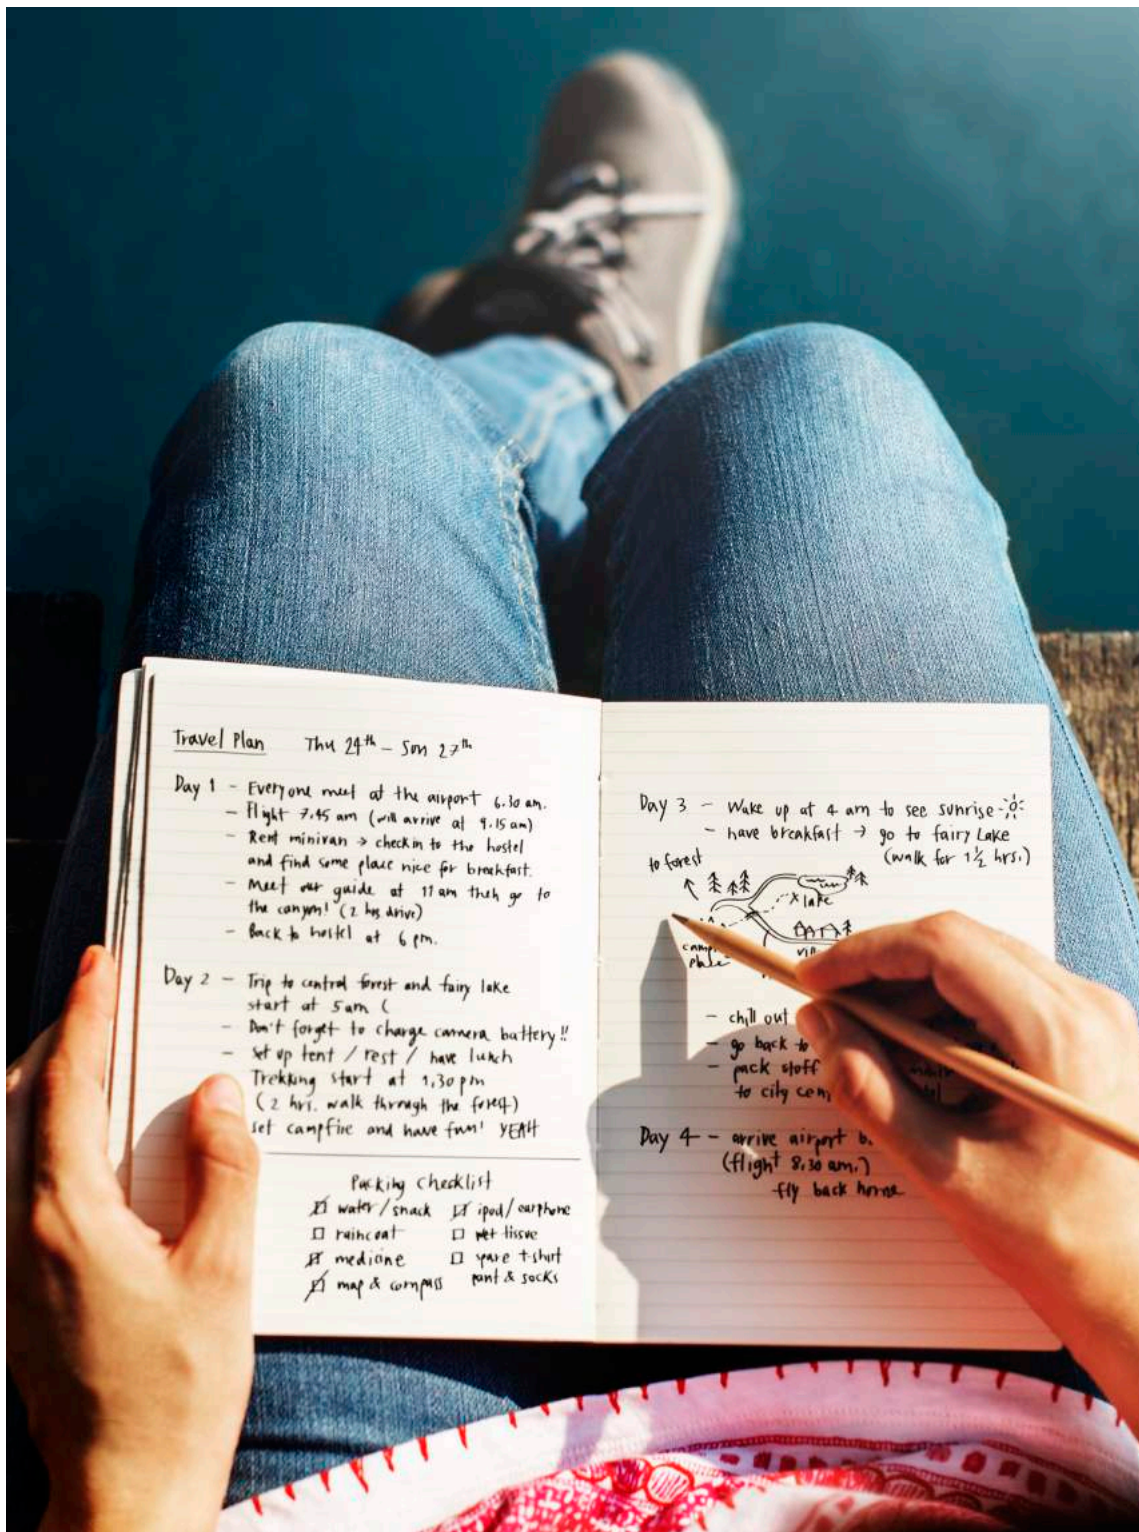 Travel Plan Thu 24th – Sun 27th
Day 1 – Everyone meet at the airport 6.30 am.
– Flight 7.45 am (will arrive at 9.15 am)
– Rent minivan → check in to the hostel
and find some place nice for breakfast.
– Meet our guide at 11 am then go to
the canyon! (2 hrs drive)
– Back to hostel at 6 pm.
Day 2 – Trip to central forest and fairy lake
start at 5 am (
– Don't forget to charge camera battery!!
– Set up tent / rest / have lunch
Trekking start at 1,30 pm
(2 hrs. walk through the forest)
set campfire and have fun! YEAH
Packing Checklist
water/snack ipod/earphone
raincoat wet tissue
medicine spare t-shirt
map & compass pant & socks
Day 3 – Wake up at 4 am to see sunrise
– have breakfast → go to fairy Lake
(walk for 1½ hrs.)
to forest
x lake
camp
place
– chill out
– go back to
– pack stuff
to city cen
Day 4 – arrive airport
(flight 8,30 am.)
fly back home